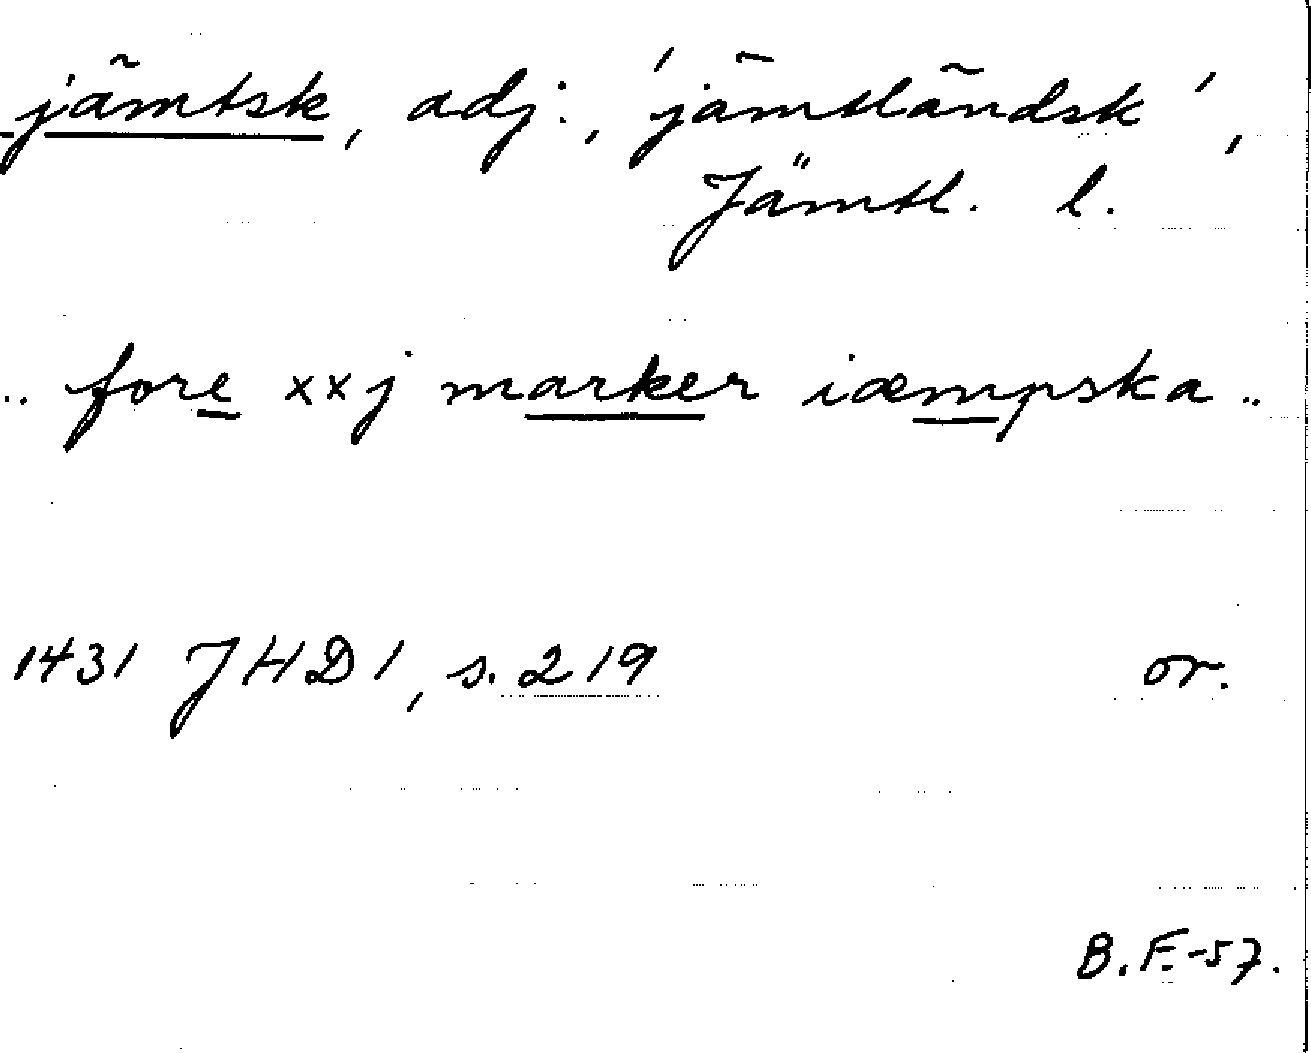 jämtsk, adj., 'jämtländsk',
Jämtl. l.
.. fore xxj marker iæmpska ..
1431 JHD 1, s. 219 or.
B.F.-57.